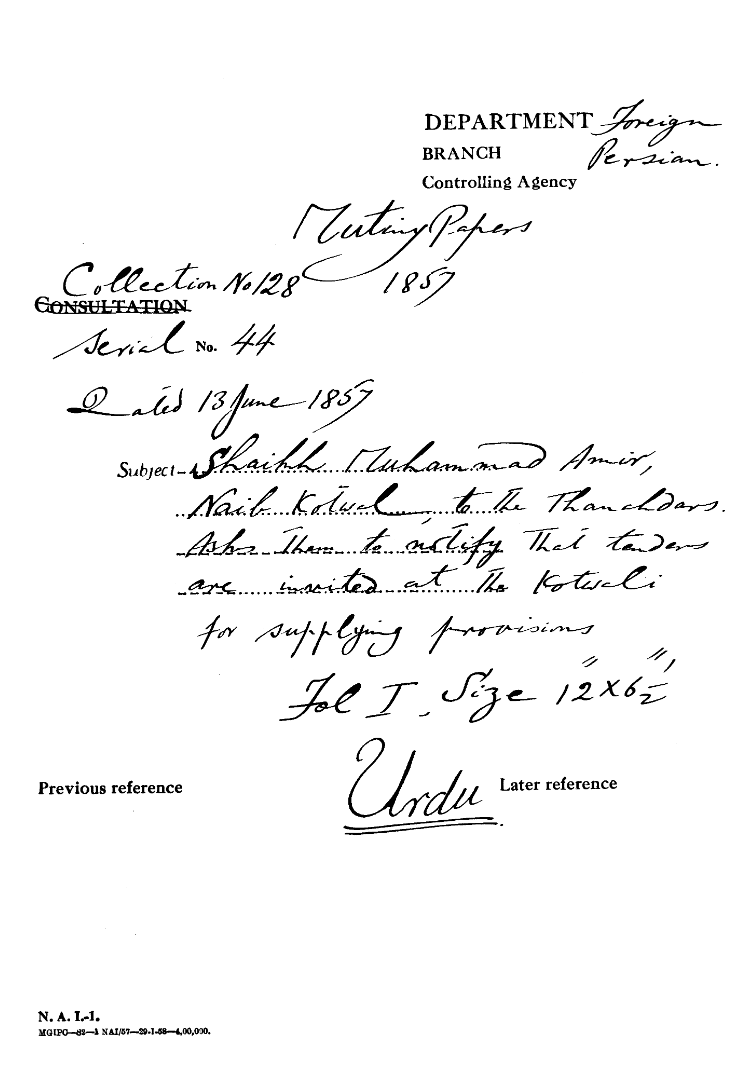 DEPARTMENT Foreign
BRANCH Persian.
Controlling Agency
Mutiny Papers
Collection No 128 1857
CONSULTATION
Serial No. 44
Dated 13 June 1857
Subject- Shaikh Muhammad Amir,
Naib Kotwal, to the Thanahdars.
Asks them to notify that tenders
are invited at the Kotwali
for supplying provisions
Fol I, Size 12" X 6½"
Urdu
Previous reference Later reference
N. A. I.-1.
MGIPC—82—1 NAI/57—29-1-58—4,00,000.